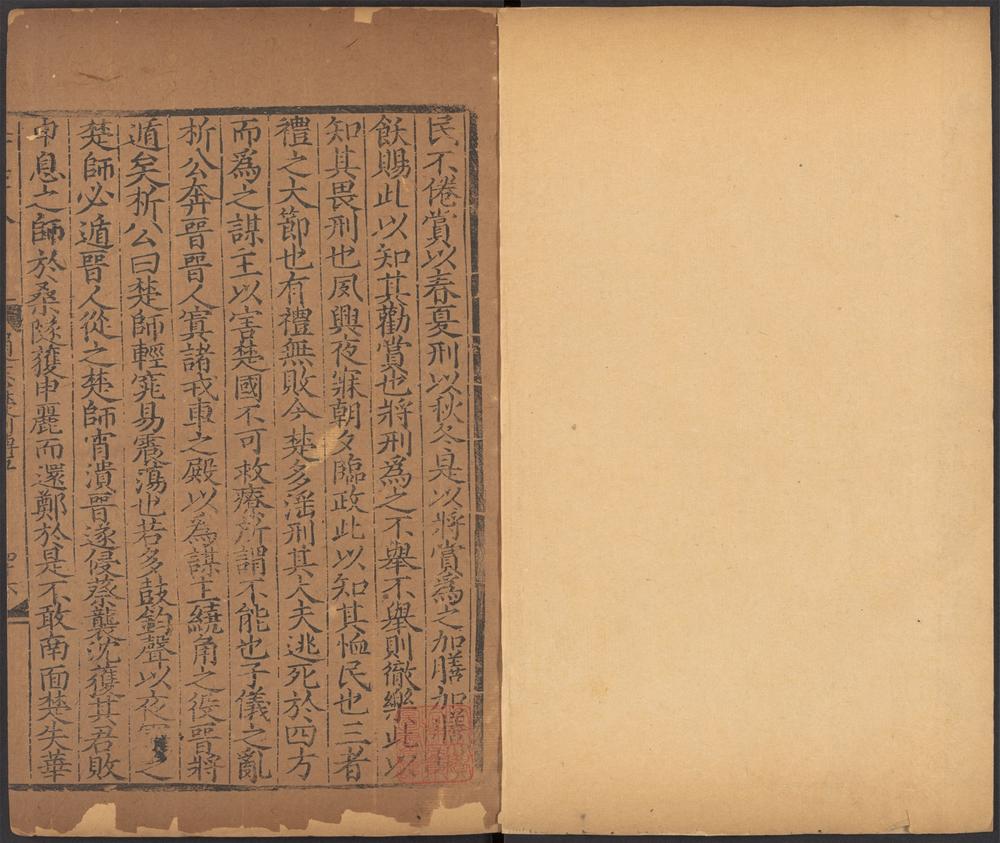 民不倦賞以春夏刑以秋冬是以將賞爲之加膳加膳則
飫賜此以知其勸賞也將刑爲之不舉不舉則徹樂此以
知其畏刑也夙興夜寐朝夕臨政此以知其恤民也三者
禮之大節也有禮無敗今楚多滛刑其大夫逃死於四方
而爲之謀主以害楚國不可救療所謂不能也子儀之亂
析公奔晉晉人寘諸戎車之殿以爲謀主繞角之役晉將
遁矣析公曰楚師輕窕易震蕩也若多鼓鈞聲以夜軍之
楚師必遁晉人從之楚師宵潰晉遂侵蔡襲沈獲其君敗
申息之師於桑隧獲申麗而還鄭於是不敢南面楚失華